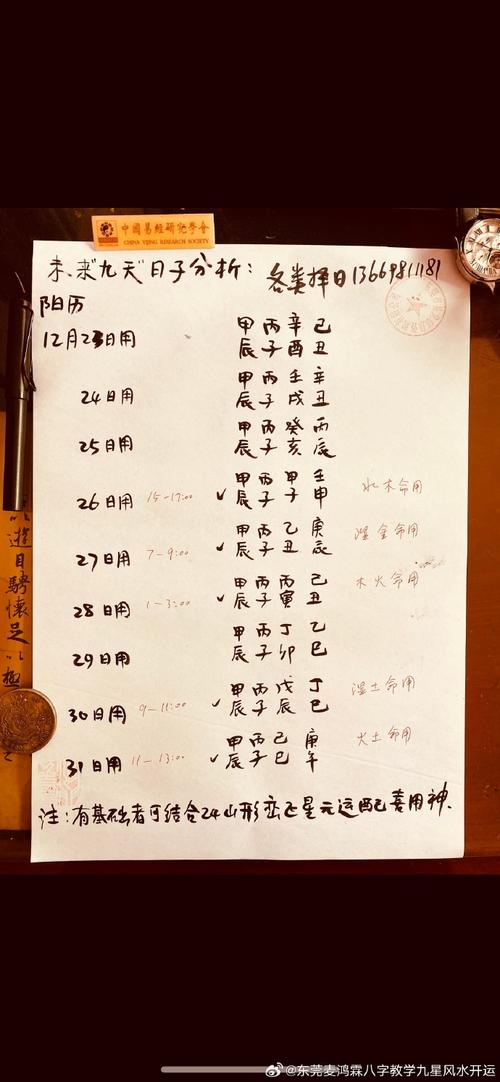 中國易經研究學會
CHINA YIJING RESEARCH SOCIETY
未来九天日子分析：
各类择日13669811181
阳历
12月23日用
甲丙辛己
辰子酉丑
24日用
甲丙壬辛
辰子戌丑
25日用
甲丙癸丙
辰子亥辰
26日用 15-17:00 ✓
甲丙甲壬
辰子子申
水木命用
27日用 7-9:00 ✓
甲丙乙庚
辰子丑辰
湿金命用
28日用 1-3:00 ✓
甲丙丙己
辰子寅丑
木火命用
29日用
甲丙丁乙
辰子卯巳
30日用 9-11:00 ✓
甲丙戊丁
辰子辰巳
湿土命用
31日用 11-13:00 ✓
甲丙己庚
辰子巳午
火土命用
注：有基础者可结合24山形峦飞星元运配己喜用神.
遊目騁懷足
以極
@东莞麦鸿霖八字教学九星风水开运